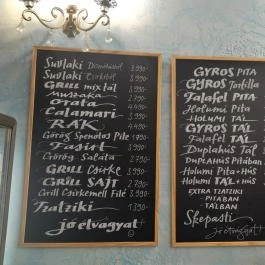 Suvlaki Disznóhúsból 3.990-
Suvlaki Csirkéből 3.990-
GRILL mix tál 3.990-
muszaka 2.790-
Orata 4.490-
Calamari 3.990-
RÁK 4.490-
Görög Spenótos Pite 3.990-
Fasírt 3.990-
Görög Saláta 2.790-
GRILL Csirke 3.990-
GRILL SAJT 2.790-
Grill Csirkemell Filé 3.990-
Tzatziki 
jó étvágyat
GYROS PITA
GYROS Tortilla
Falafel PITA
Holumi Pita
HOLUMI TÁL
GYROS TÁL
Falafel TÁL
Duplahús Tál
DUPLAHÚS Pitában
Holumi Pita + HÚS
Holumi TÁL + HÚS
EXTRA TZATZIKI
- PITÁBAN
- TÁLBAN
Skepasti
jó étvágyat